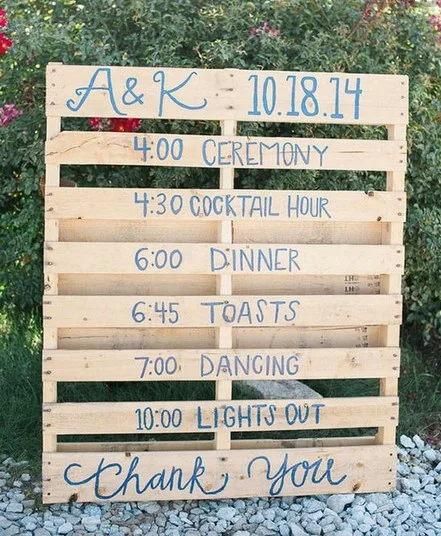 A&K 10.18.14
4:00 CEREMONY
4:30 COCKTAIL HOUR
6:00 DINNER
6:45 TOASTS
7:00 DANCING
10:00 LIGHTS OUT
Thank You